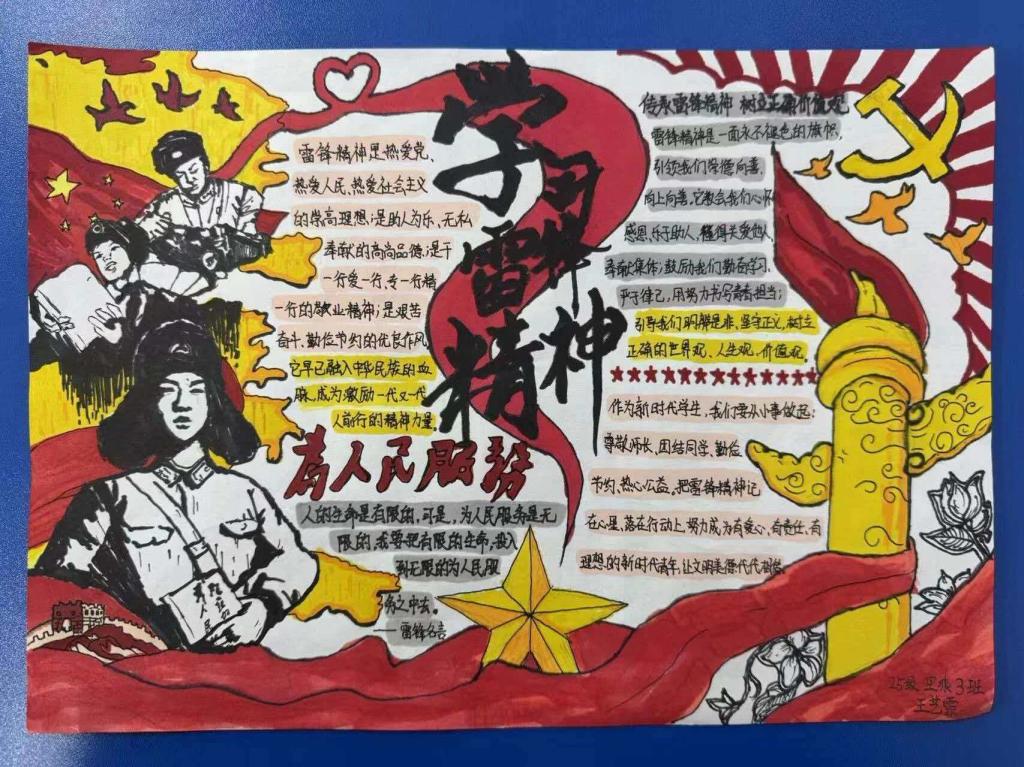 学习雷锋精神
雷锋精神是热爱党、
热爱人民、热爱社会主义
的崇高理想;是助人为乐、无私
奉献的高尚品德;是干
一行爱一行、专一行精
一行的敬业精神;是艰苦
奋斗、勤俭节约的优良作风,
它早已融入中华民族的血
脉,成为激励一代又一代
人前行的精神力量。
为人民服务
人的生命是有限的,可是,为人民服务是无
限的,我要把有限的生命,投入
到无限的为人民服
务之中去。
——雷锋名言
传承雷锋精神 树立正确价值观
雷锋精神是一面永不褪色的旗帜,
引领我们崇德向善,
向上向善,它教会我们心怀
感恩、乐于助人,懂得关爱他人、
奉献集体;鼓励我们勤奋学习、
严于律己,用努力书写青春担当;
引导我们明辨是非、坚守正义,树立
正确的世界观、人生观、价值观。
作为新时代学生,我们要从小事做起:
尊敬师长、团结同学、勤俭
节约、热心公益,把雷锋精神记
在心里,落在行动上,努力成为有爱心、有责任、有
理想的新时代青年,让文明美德代代相传。
为人民
25级
3班
王艺霏